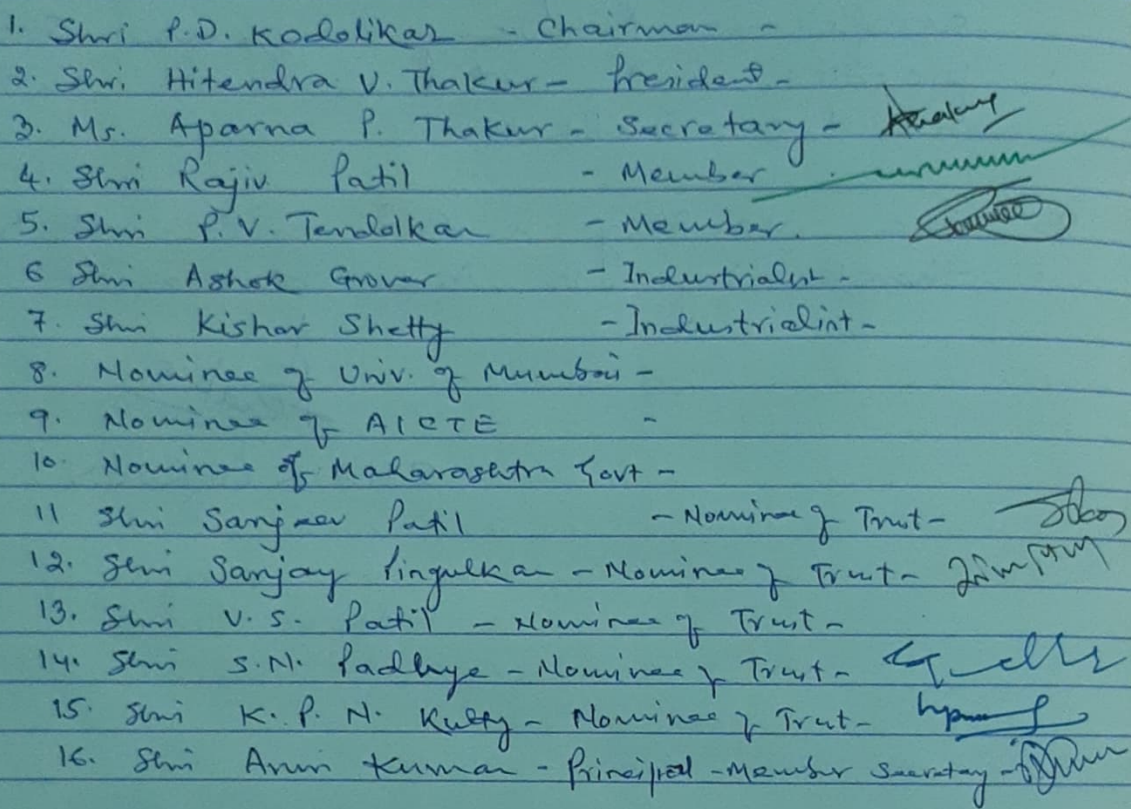 1. Shri P.D. Kodolikar - Chairman -
2. Shri. Hitendra V. Thakur - President -
3. Ms. Aparna P. Thakur - Secretary -
4. Shri Rajiv Patil - Member
5. Shri P.V. Tendolkar - Member.
6 Shri Ashok Grover - Industrialist -
7. Shri Kishor Shetty - Industrialist -
8. Nominee of Univ. of Mumbai -
9. Nominee of AICTE -
10. Nominee of Maharashtra Govt -
11 Shri Sanjeev Patil - Nominee of Trust -
12. Shri Sanjay Pingulkar - Nominee of Trust -
13. Shri V.S. Patil - Nominee of Trust -
14. Shri S.N. Padhye - Nominee of Trust -
15. Shri K.P.N. Kutty - Nominee of Trust -
16. Shri Arun Kumar - Principal - Member Secretary -